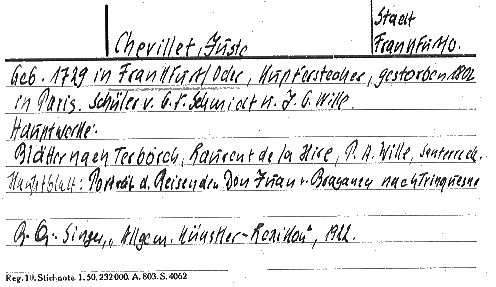 Stadt
Chevillet, Juste Frankfurt/O.
Geb. 1729 in Frankfurt/Oder, Kupferstecher, gestorben 1802
in Paris. Schüler v. G. F. Schmidt u. J. G. Wille.
Hauptwerke:
Blätter nach Terborch, Laurent de la Hire, P. A. Wille, Santerre
Hauptblatt: Porträt d. Reisenden Don Juan v. Braganza nach Trinquesse
Singer, "Allgem. Künstler-Lexikon", 1922.
Reg. 10. Stichnote 1. 50. 232000. A. 803. S. 4062